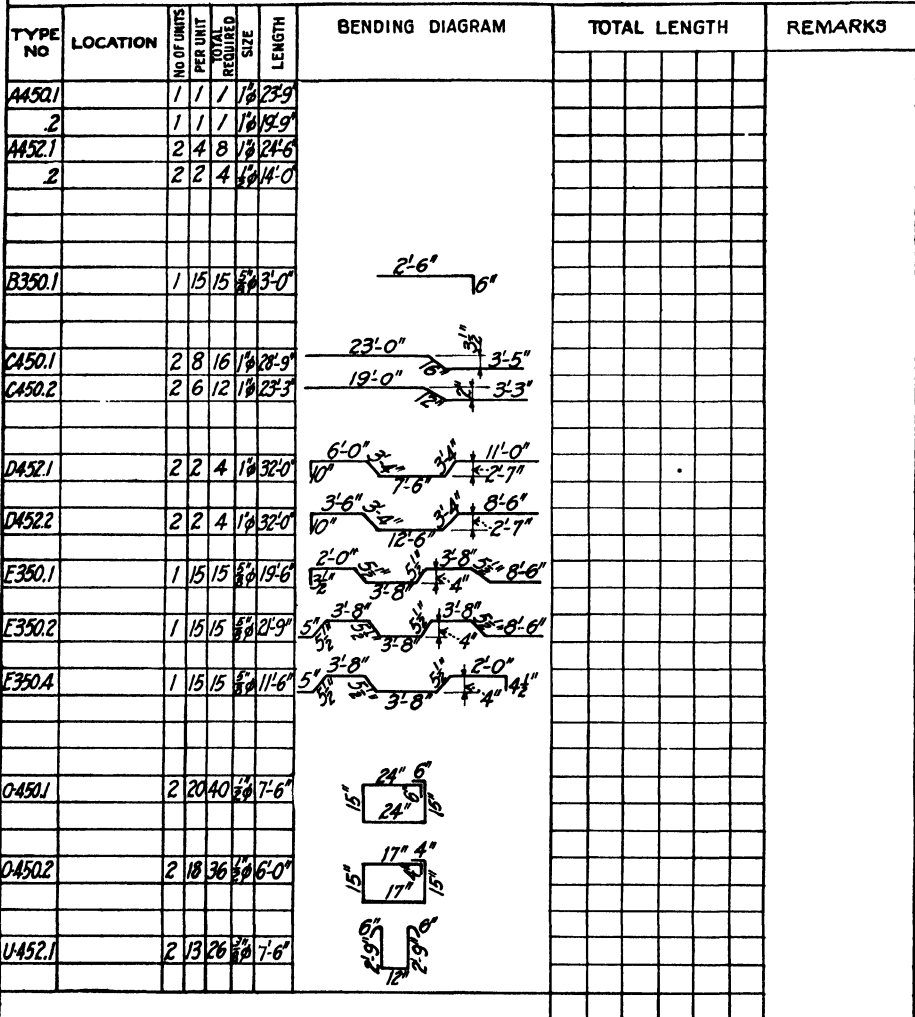 TYPE NO LOCATION No OF UNITS PER UNIT TOTAL REQUIRED SIZE LENGTH BENDING DIAGRAM TOTAL LENGTH REMARKS
A450.1 1 1 1 1"ϕ 23'-9"
.2 1 1 1 1"ϕ 19'-9"
A452.1 2 4 8 1"ϕ 24'-6"
.2 2 2 4 1/2"ϕ 14'-0"
B350.1 1 15 15 5/8"ϕ 3'-0" 2'-6" 6"
C450.1 2 8 16 1"ϕ 28'-9" 23'-0" 16" 3 1/2" 3'-5"
C450.2 2 6 12 1"ϕ 23'-3" 19'-0" 12" 2" 3'-3"
D452.1 2 2 4 1"ϕ 32'-0" 10" 6'-0" 3'-4" 7'-6" 3'-4" 11'-0" 2'-7"
D452.2 2 2 4 1"ϕ 32'-0" 10" 3'-6" 3'-4" 12'-6" 3'-4" 8'-6" 2'-7"
E350.1 1 15 15 5/8"ϕ 19'-6" 3 1/2" 2'-0" 5 1/2" 3'-8" 5 1/2" 4" 3'-8" 5 1/2" 8'-6"
E350.2 1 15 15 5/8"ϕ 21'-9" 5" 5 1/2" 3'-8" 5 1/2" 3'-8" 5 1/2" 4" 3'-8" 5 1/2" 8'-6"
E350.4 1 15 15 5/8"ϕ 11'-6" 5" 5 1/2" 3'-8" 5 1/2" 3'-8" 5 1/2" 4" 2'-0" 4 1/2"
O-450.1 2 20 40 1/2"ϕ 7'-6" 15" 24" 6" 6" 24" 15"
O-450.2 2 18 36 1/2"ϕ 6'-0" 15" 17" 4" 4" 17" 15"
U-452.1 2 13 26 3/8"ϕ 7'-6" 6" 2'-9" 12" 2'-9" 6"